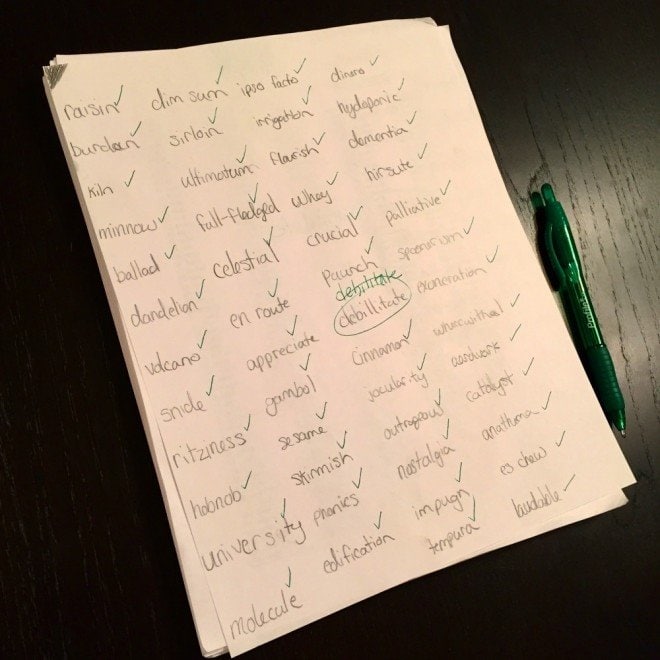 raisin
burden
kiln
minnow
ballad
dandelion
volcano
snide
ritziness
hobnob
university
molecule
dim sum
sirloin
ultimatum
full-fledged
celestial
en route
appreciate
gambol
sesame
skirmish
phonics
edification
ipso facto
irrigation
flourish
whey
crucial
paunch
debilitate
debillitate
cinnamon
jocularity
outrageous
nostalgia
impugn
tempura
dinero
hydroponic
dementia
hirsute
palliative
spoonerism
exoneration
wherewithal
aardwolf
catalyst
anathema
eschew
laudable